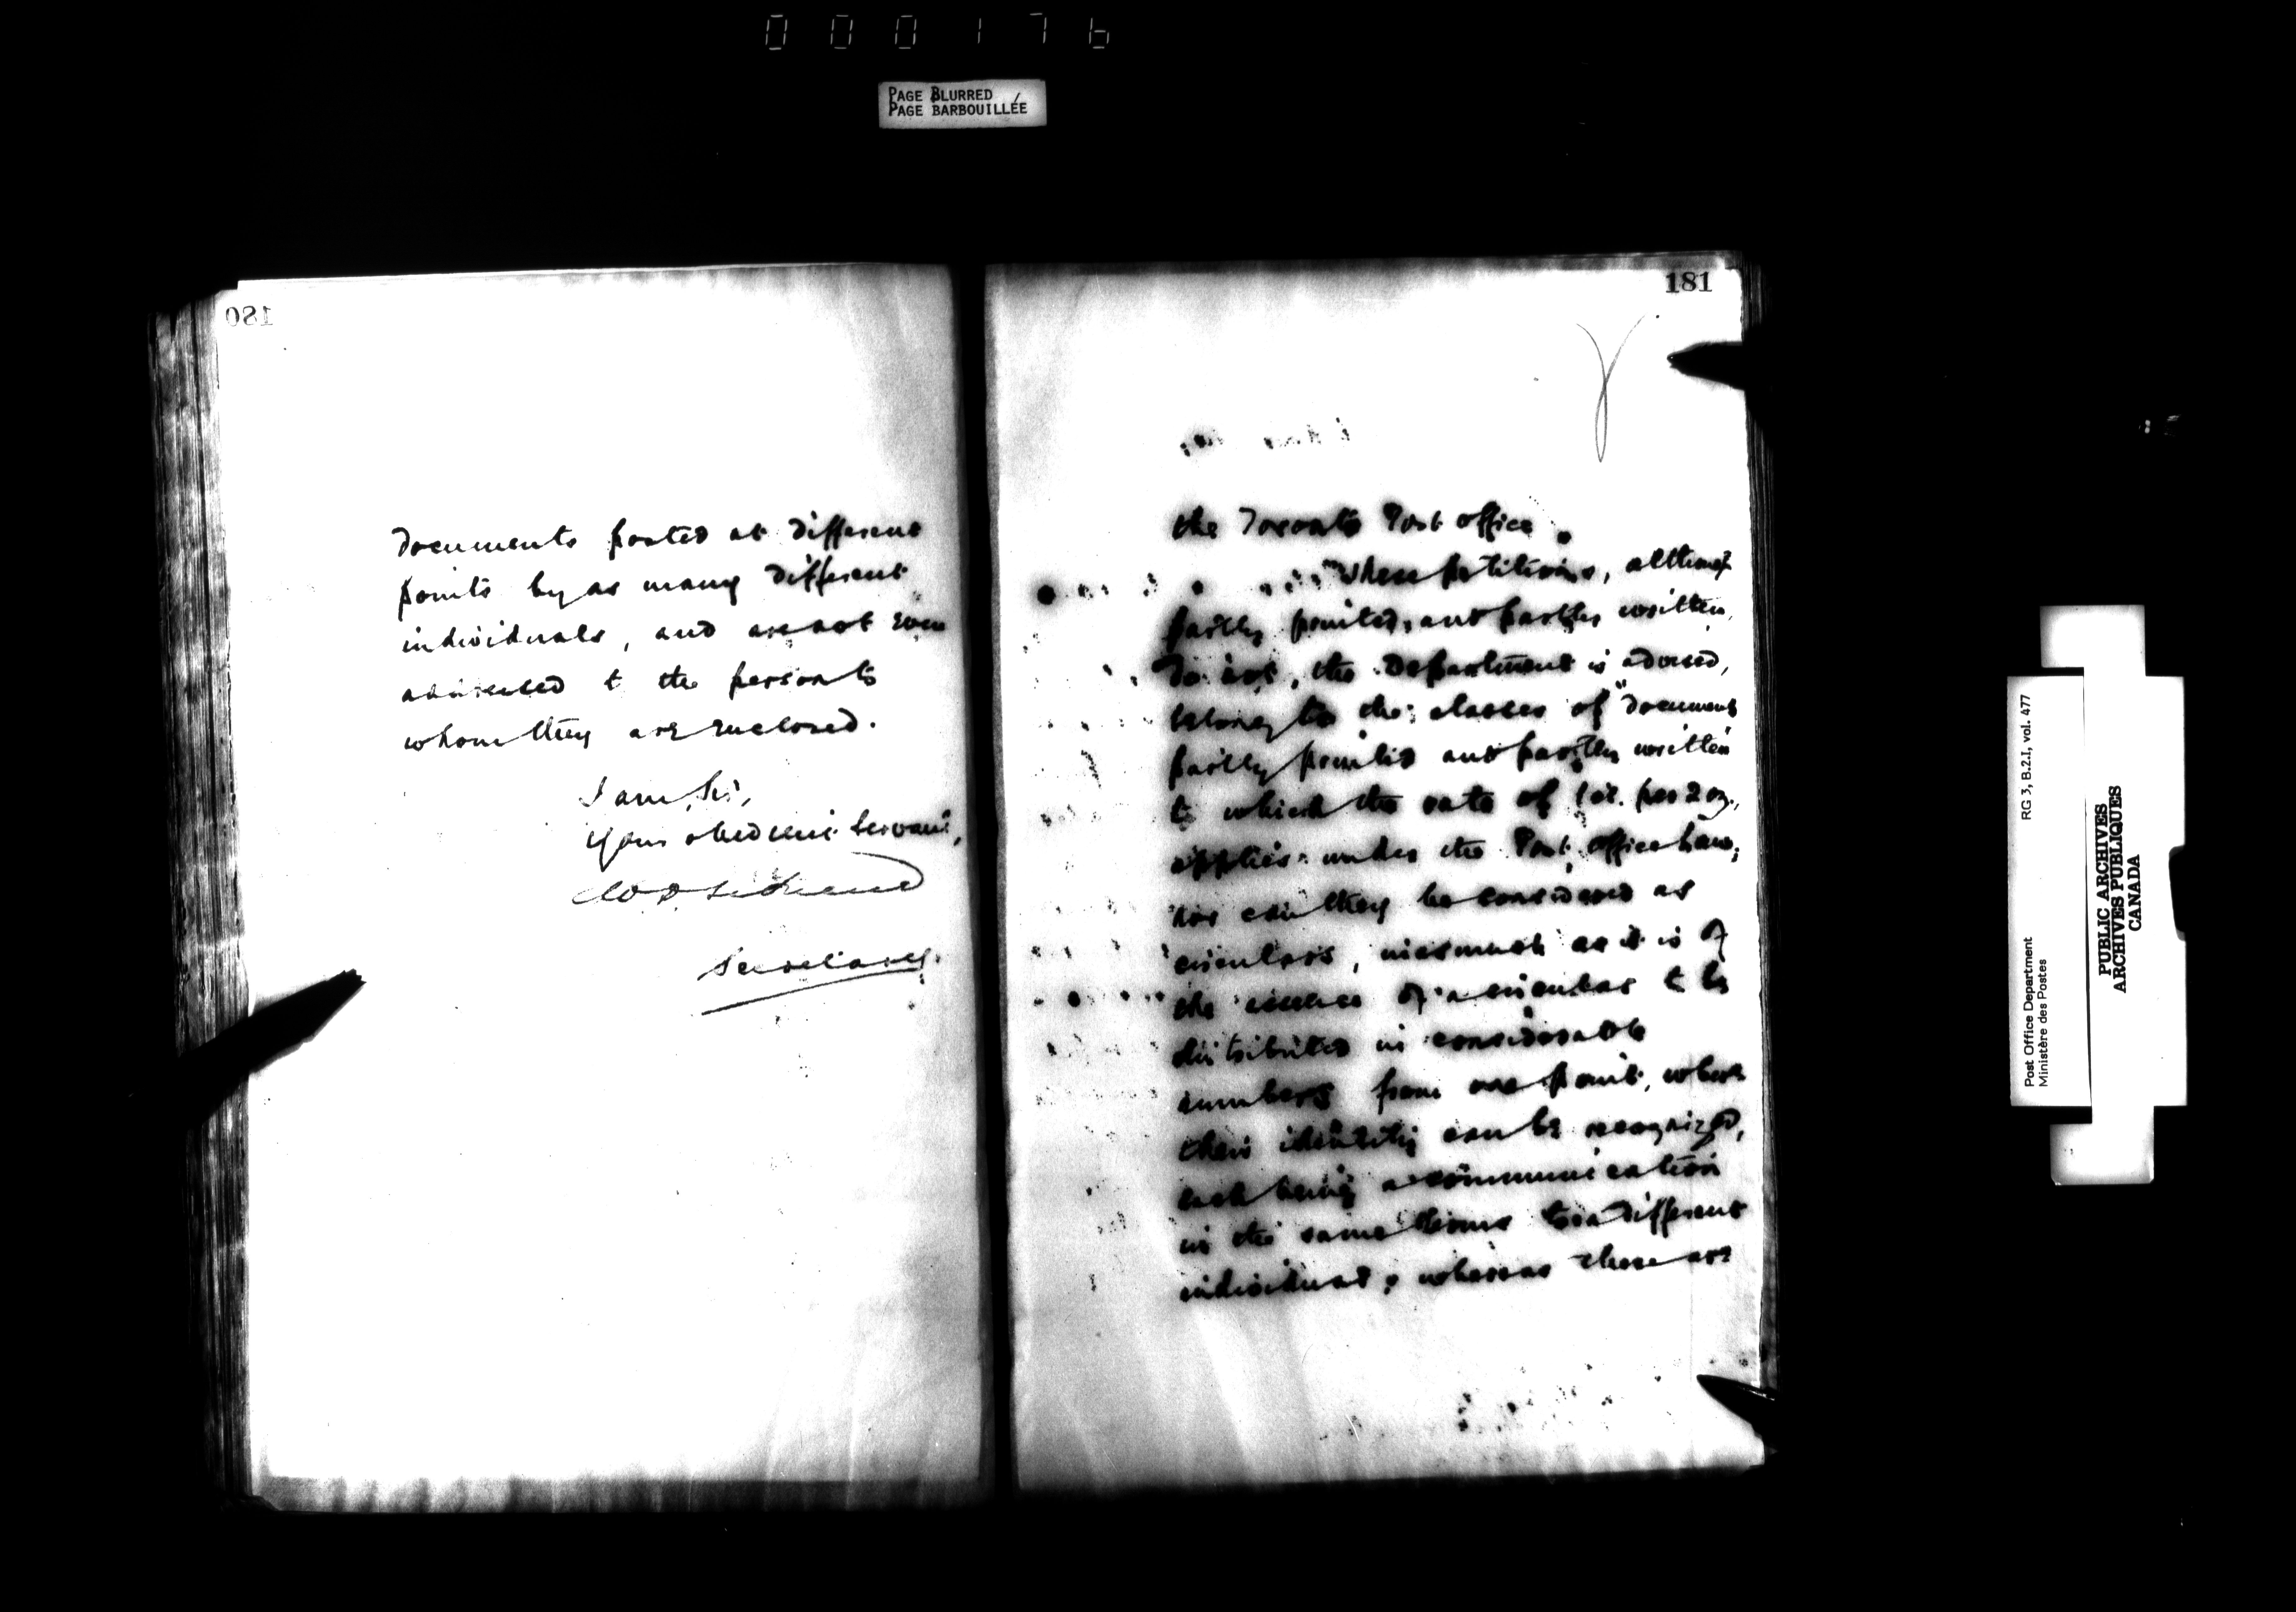 000176
PAGE BLURRED
PAGE BARBOUILLÉE
180
documents posted at different
points by as many different
individuals, and are not even
addressed to the persons to
whom they are enclosed.
I am, Sir,
Your obedient Servant,
Secretary.
181
the Toronto Post office.
These petitions, although
partly printed, and partly written,
do not, the Department is advised,
belong to the classes of "documents
partly printed and partly written
to which the rate of 1 ct. per 2 oz.,
applies under the Post Office Law;
nor can they be considered as
circulars, inasmuch as it is of
the essence of a circular to be
distributed in considerable
numbers from one point, where
their identity can be recognized,
each being a communication
in the same terms to a different
individual; whereas these are
Post Office Department
Ministère des Postes
RG 3, B.2.I, vol. 477
PUBLIC ARCHIVES
ARCHIVES PUBLIQUES
CANADA